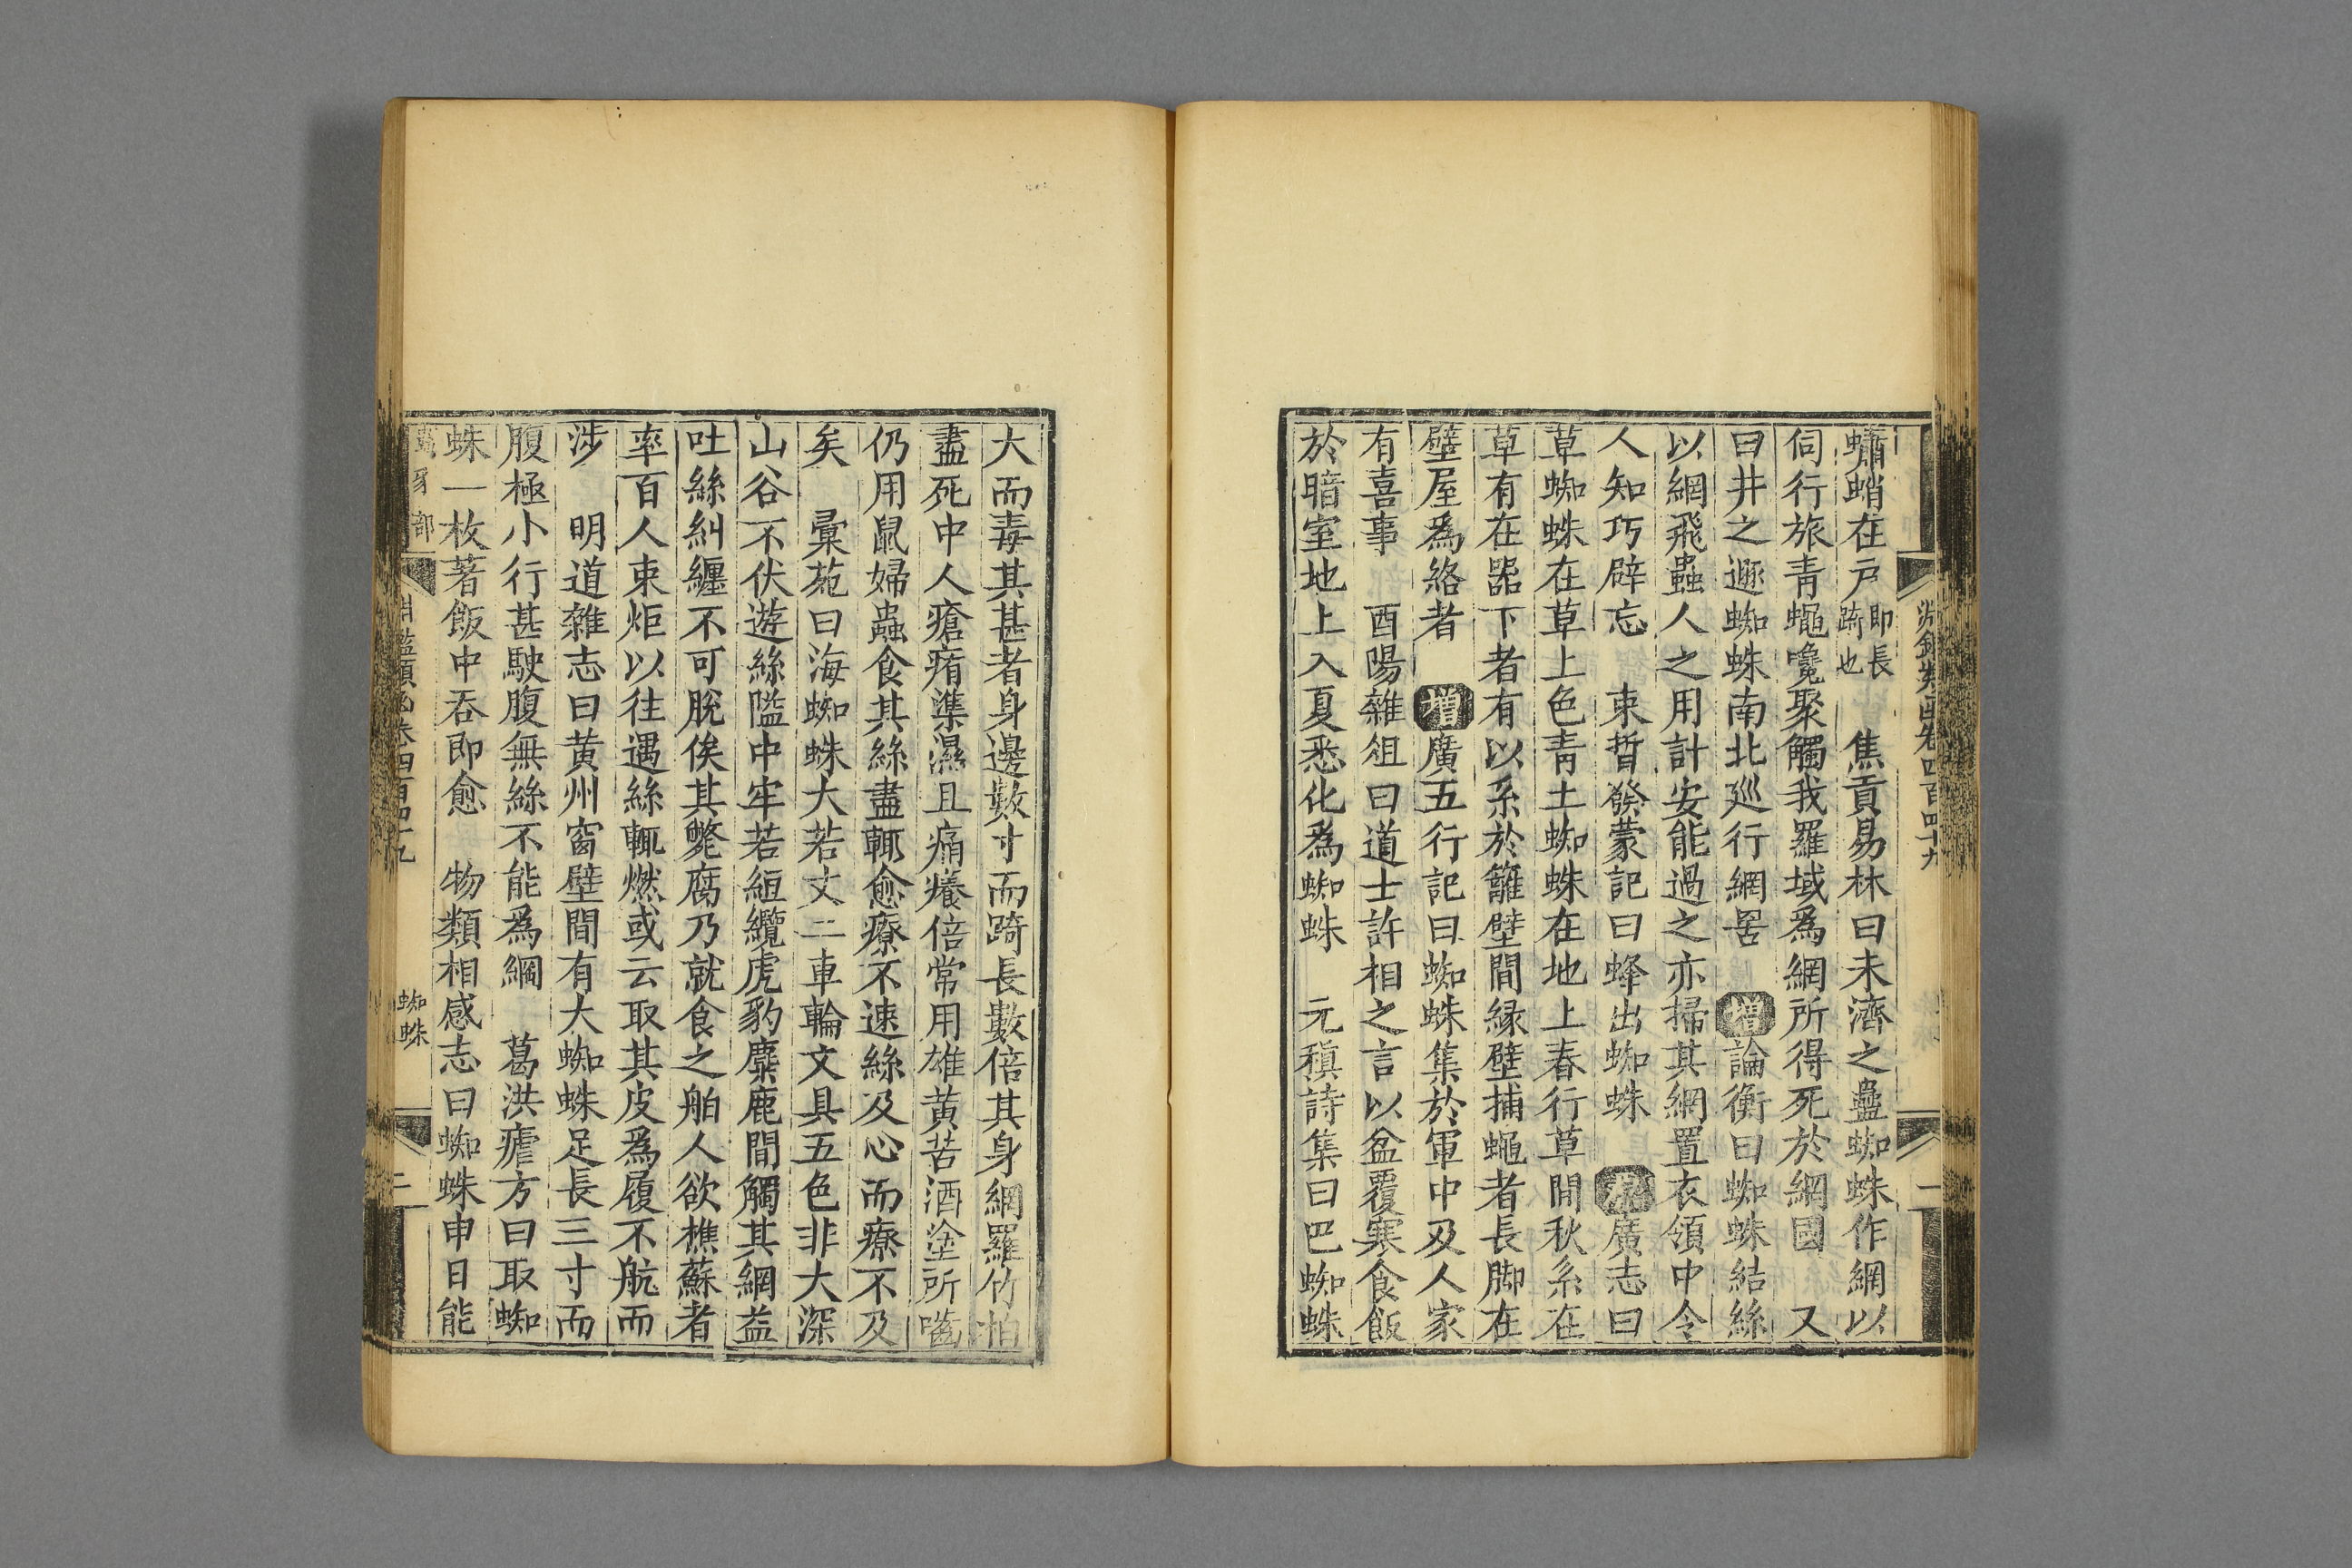 蠨蛸在戶即長踦也　焦貢易林曰未濟之蠱蜘蛛作網以
伺行旅青蠅嚵聚觸我羅域爲網所得死於網國　又
曰井之遯蜘蛛南北廵行網罟　增論衡曰蜘蛛結絲
以網飛蟲人之用計安能過之亦掃其網置衣領中令
人知巧辟忘　束晳發蒙記曰蜂出蜘蛛　原廣志曰
草蜘蛛在草上色青土蜘蛛在地上春行草間秋系在
草有在器下者有以系於籬壁間緣壁捕蠅者長脚在
壁屋爲絡者　增廣五行記曰蜘蛛集於軍中及人家
有喜事　酉陽雜俎曰道士許相之言以盆覆寒食飯
於暗室地上入夏悉化爲蜘蛛　元稹詩集曰巴蜘蛛
大而毒其甚者身邊數寸而踦長數倍其身網羅竹柏
盡死中人瘡痏潗濕且痛癢倍常用雄黄苦酒塗所嚙
仍用鼠婦蟲食其絲盡輒愈療不速絲及心而療不及
矣　彙苑曰海蜘蛛大若丈二車輪文具五色非大深
山谷不伏遊絲隘中牢若絙纜虎豹麋鹿間觸其網益
吐絲糾纏不可脫俟其斃腐乃就食之舶人欲樵蘇者
率百人束炬以往遇絲輒燃或云取其皮爲履不航而
涉　明道雜志曰黄州窗壁間有大蜘蛛足長三寸而
腹極小行甚駛腹無絲不能爲網　葛洪瘧方曰取蜘
蛛一枚著飯中吞即愈　物類相感志曰蜘蛛申日能
淵鑑類函卷四百四十九
蜘蛛
二